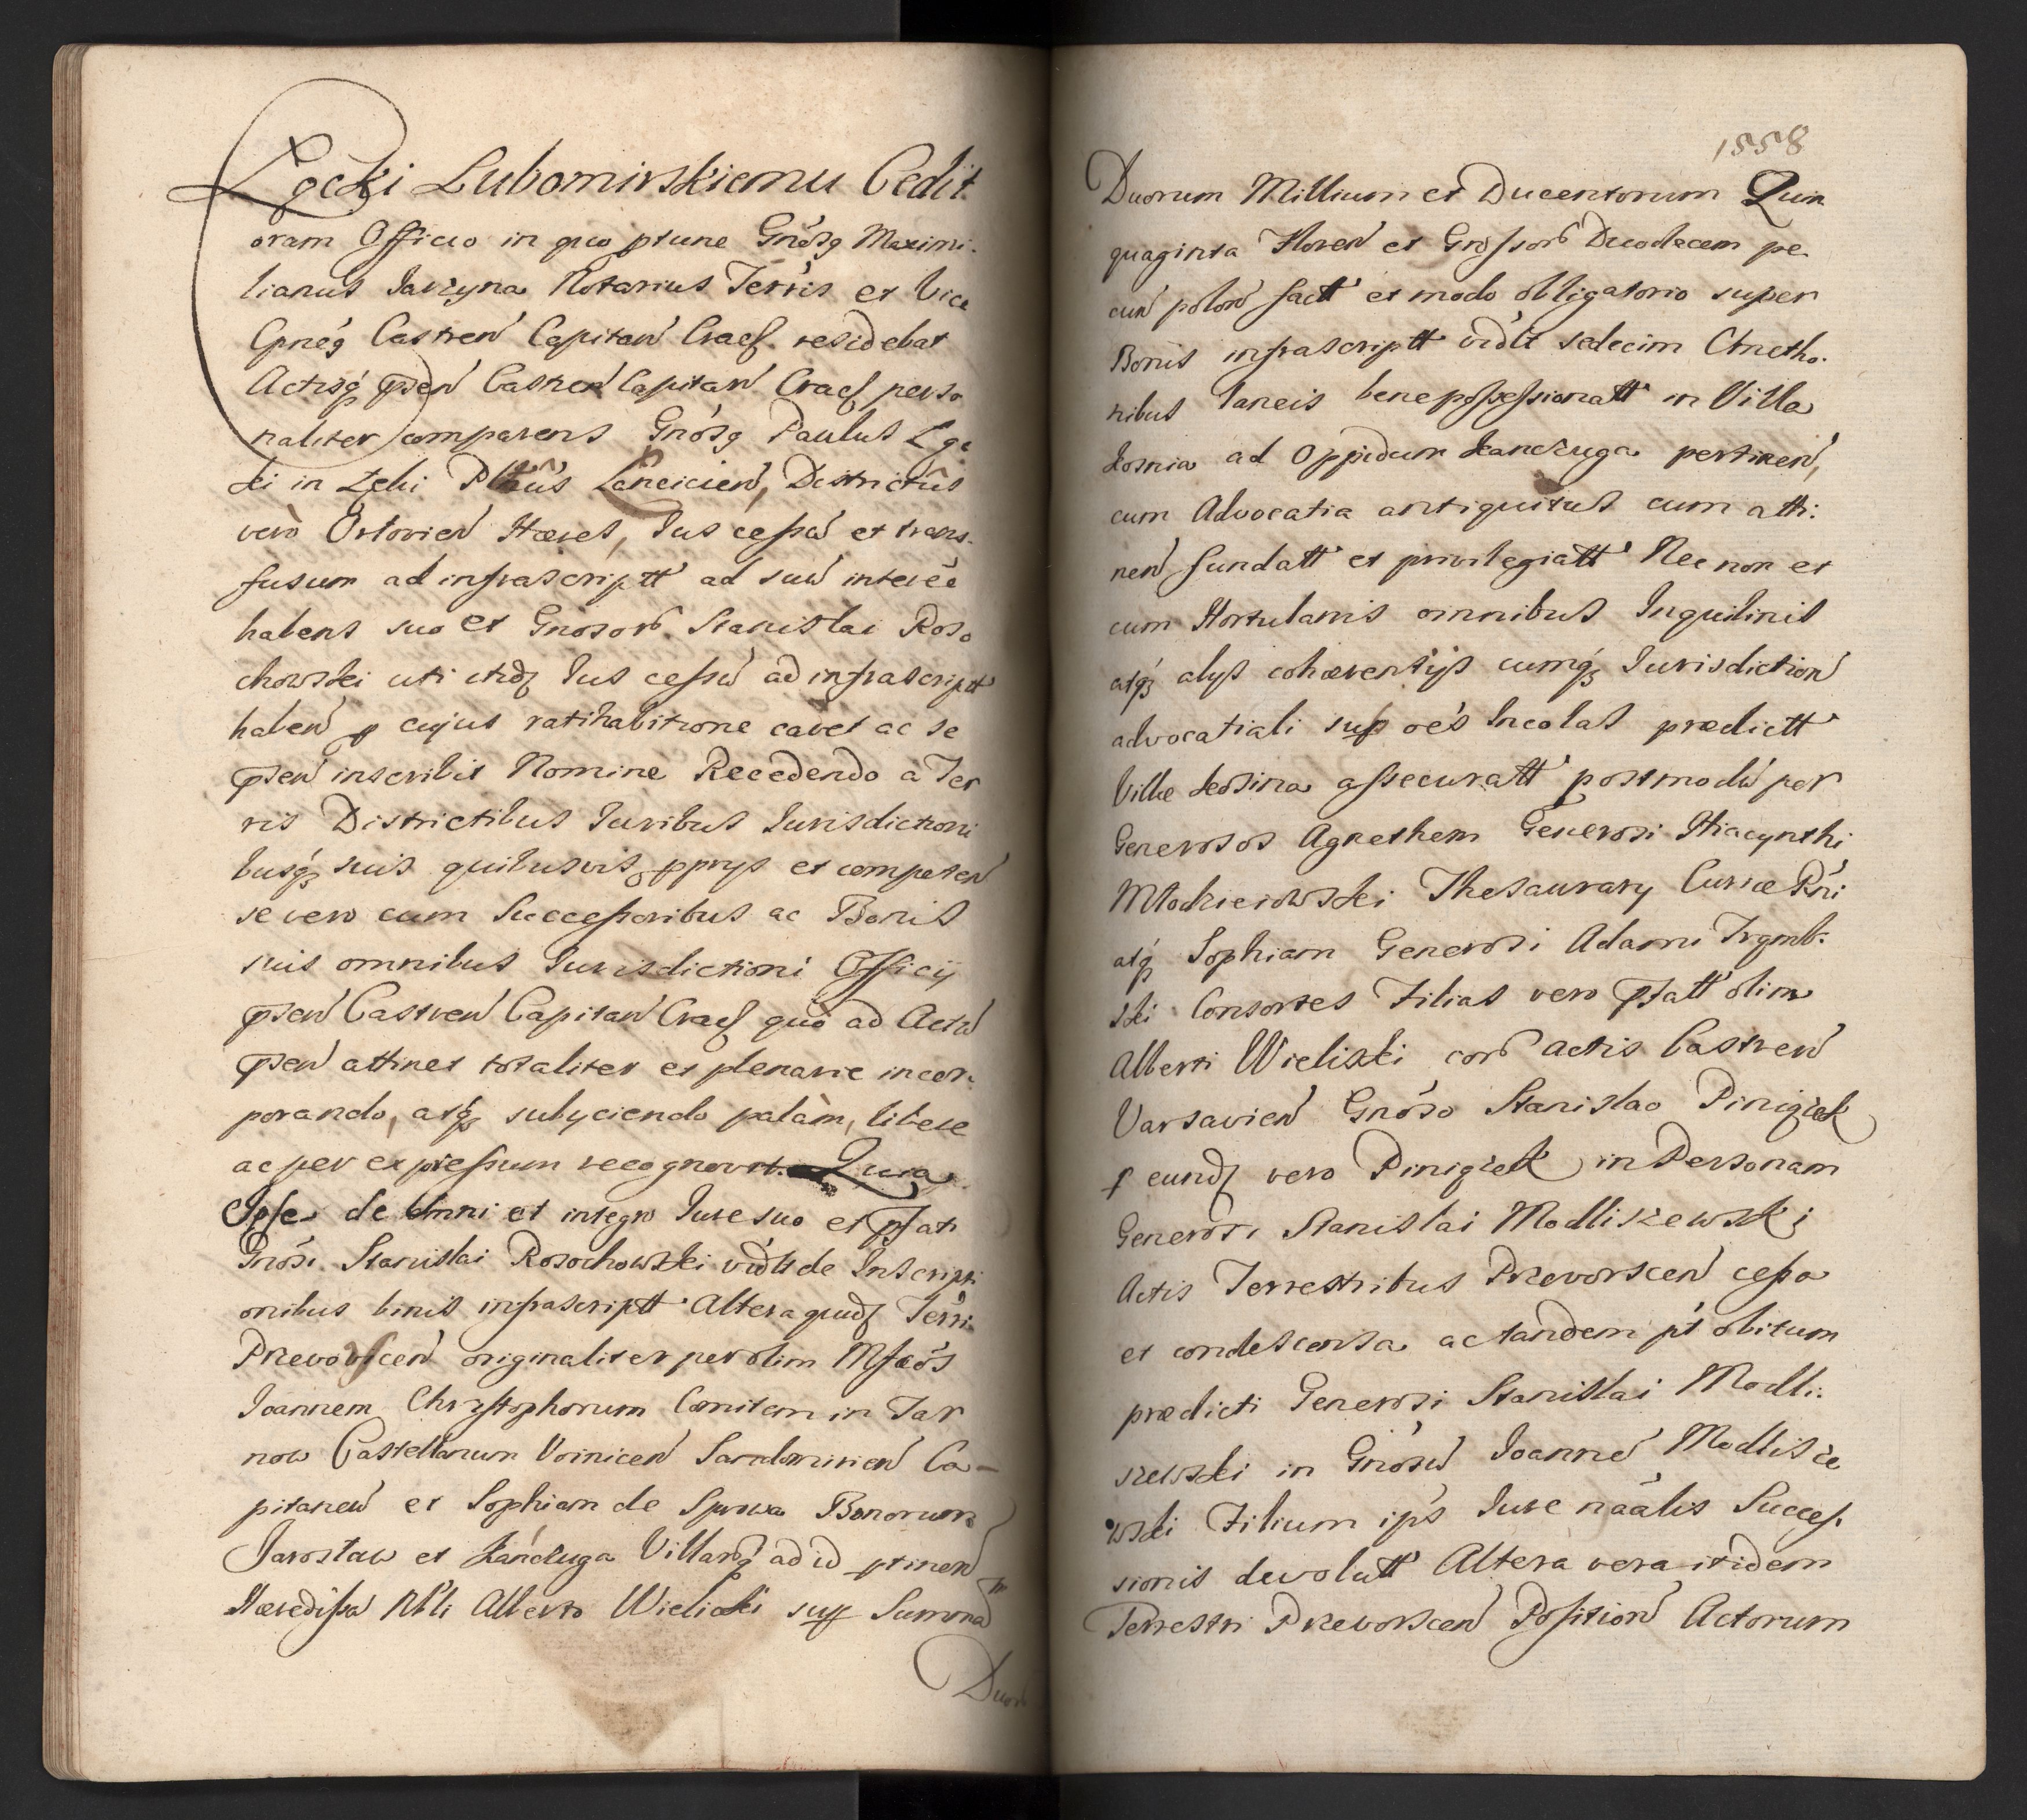 Łgcki Lubomirskiemu Cedit
oram Officio in quo ptunc Gnósq Maximi-
lianus Jarzyna Notarius Terris et Vice
Gneq́ Castren Capitan Cracſ. residebat
Actisq́ psen Castren Capitan Cracſ perso
naliter comparens Gnósq Paulus Łgc
ki in Łęki Łęncicien, Districtus
vero Orłovien Hæres, Jus cessu et trans-
fusum ad infrascriptt ad suu interee
habens suo et Gnosor. Stanislai Roso
chowski uti itidȝ Jus cessu ad infrascriptt
haben p cujus ratihabitione cavet ac se
psen inscribit Nomine Recedendo a Ter
ris Districtibus Juribus Jurisdictioni
busq́ȝ suis quibusvis pprys et competen
se vero cum Successoribus ac Bonis
suis omnibus Jurisdictioni Officij
psen Castren Capitan Cracſ quò ad Actu
psen attinet totaliter et plenarie incor-
porando, atq́ȝ subyciendo palàm, libere
ac per expressum recognovit. Quia
Ipse de omni et integro Jure suo et pfati
Gnósi Stanislai Rosochowski vidlt de Inscripti
onibus binis infrascriptt Altera quidȝ Terri
Przevorscen originaliter per olim Mſcós
Joannem Christophorum Comitem in Tar
now Castellanum Voinicen Sandomirien Ca-
pitaneu et Sophiam de Sprowa Bonorum
Jaroslaw et Kańczuga Villarq́ ad id ptinen
Hæredissa Nbli Alberto Wielicki sup Summa
Duor
1558
Duorum Millium et Ducentorum Quin
quaginta Floren et Grossor Duodecem pe-
cun polon fact et modo obligatorio super
Bonis infrascriptt vidlt sedecim Cmetho-
nibus laneis bene possessionatt in Villa
Kosina ad Oppidum Kanczuga pertinen,
cum Advocatia antiquitus cum atti-
nen fundatt et privilegiatt Nec non et
cum Hortulanis omnibus Inquilinis
atq́ȝ alys cohærentijs cumq́ȝ Jurisdiction
advocatiali sup oés Incolas prædictt
Villæ Kosina assecuratt postmodu per
Generosos Agnethem Generosi Hiacynthi
Młodzieiowski Thesaurary Curiæ Rńi
atq́ Sophiam Generosi Adami Tręmb-
ski Consortes Filias vero pfatt olim
Alberti Wieliski cor actis Castren
Varsavien Gnóso Stanislao Piniążek
p eundȝ vero Piniążek in Personam
Generosi Stanislai Modliszewski
Actis Terrestribus Przevorscen cessa
et condescensa ac tandem pt obitum
prædicti Generosi Stanislai Modli-
szewski in Gnósu Joanne Modlisze
wski Filium ips Jure náalis Succeſ-
sionis devolutt Altera vera itidem
Terrestri Przevorscen Position Actorum